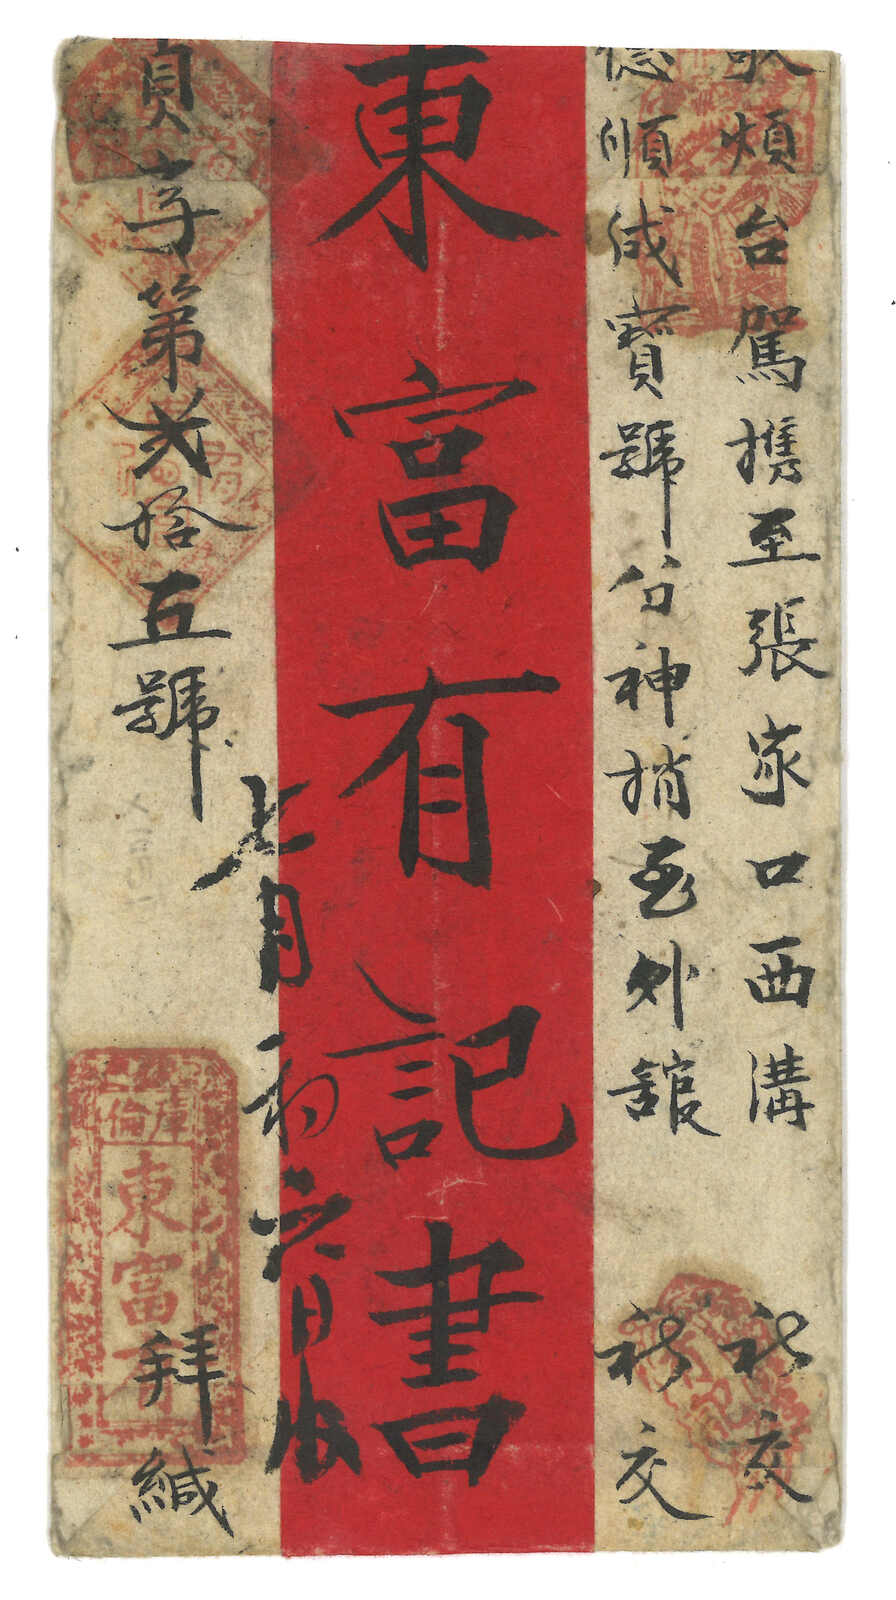 敬煩台駕携至張家口西溝 祈交
德順成寶號分神捎至外館 祈交
東富有記書
七月初六日
貞字第弍拾五號
庫倫
東富
拜緘